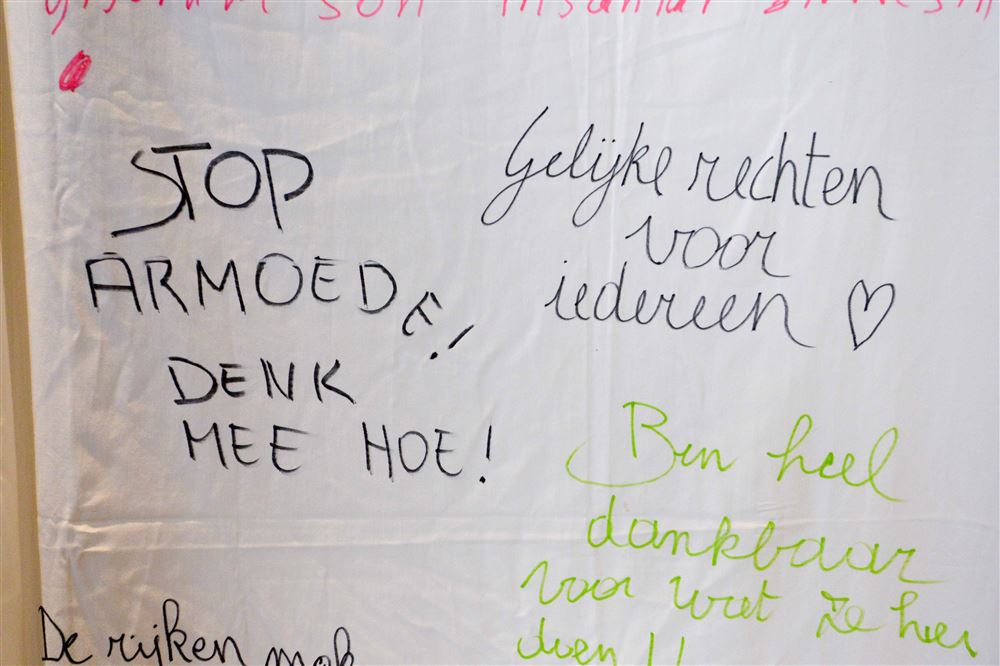 son insanlar
STOP
ARMOEDE!
DENK
MEE HOE!
Gelijke rechten
voor
iedereen
Ben heel
dankbaar
voor wat ze hier
doen!!
De rijken